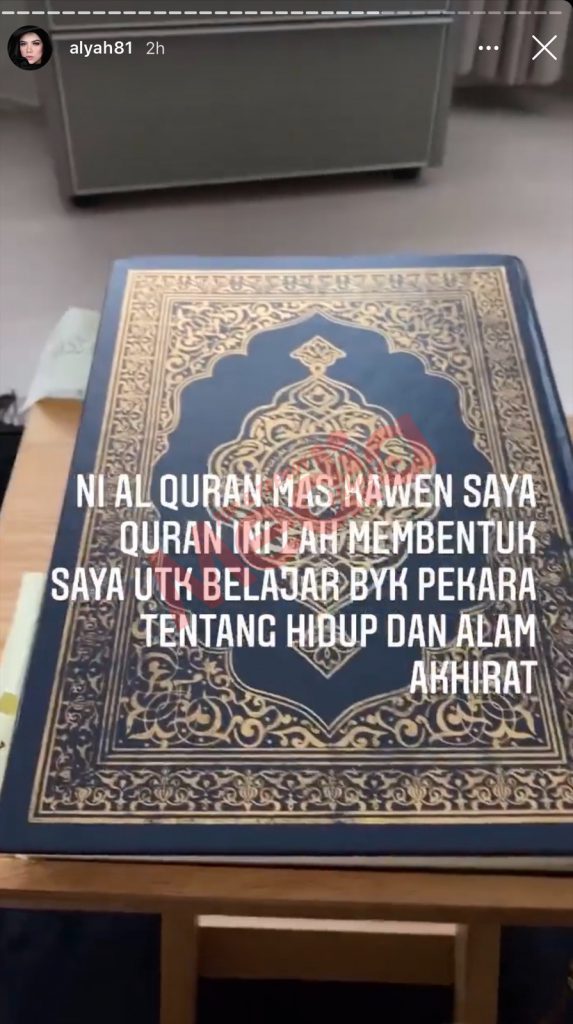 alyah81 2h
NI AL QURAN MAS KAWEN SAYA
QURAN INI LAH MEMBENTUK
SAYA UTK BELAJAR BYK PEKARA
TENTANG HIDUP DAN ALAM
AKHIRAT